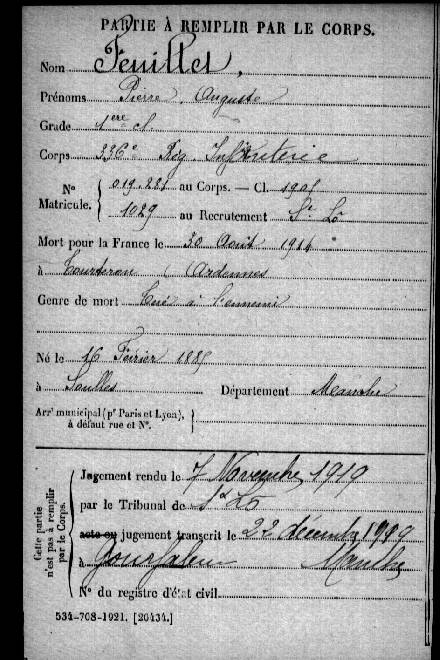 PARTIE À REMPLIR PAR LE CORPS.
Nom Feuillet,
Prénoms Pierre, Auguste
Grade 1ère cl
Corps 336e Rég. Infanterie
N° Matricule. { 019.281 au Corps. — Cl. 1905
1029 au Recrutement St Lô
Mort pour la France le 30 Août 1914
à Tourteron (Ardennes
Genre de mort Tué à l'ennemi
Né le 16 Février 1885
à Soulles Département Manche
Arr^t municipal (p^r Paris et Lyon), à défaut rue et N°.
Cette partie n'est pas à remplir par le Corps.
Jugement rendu le 7 Novembre 1919
par le Tribunal de St Lô
acte ou jugement transcrit le 22 décembre 1919
à Gourfaleur Manche
N° du registre d'état civil
534-708-1921. [26434.]